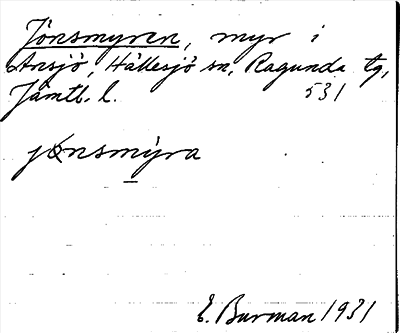 Jönsmyren, myr i
Ansjö, Hällesjö sn, Ragunda tg,
Jämtl. l. 531
jønsmýra
E. Burman 1931